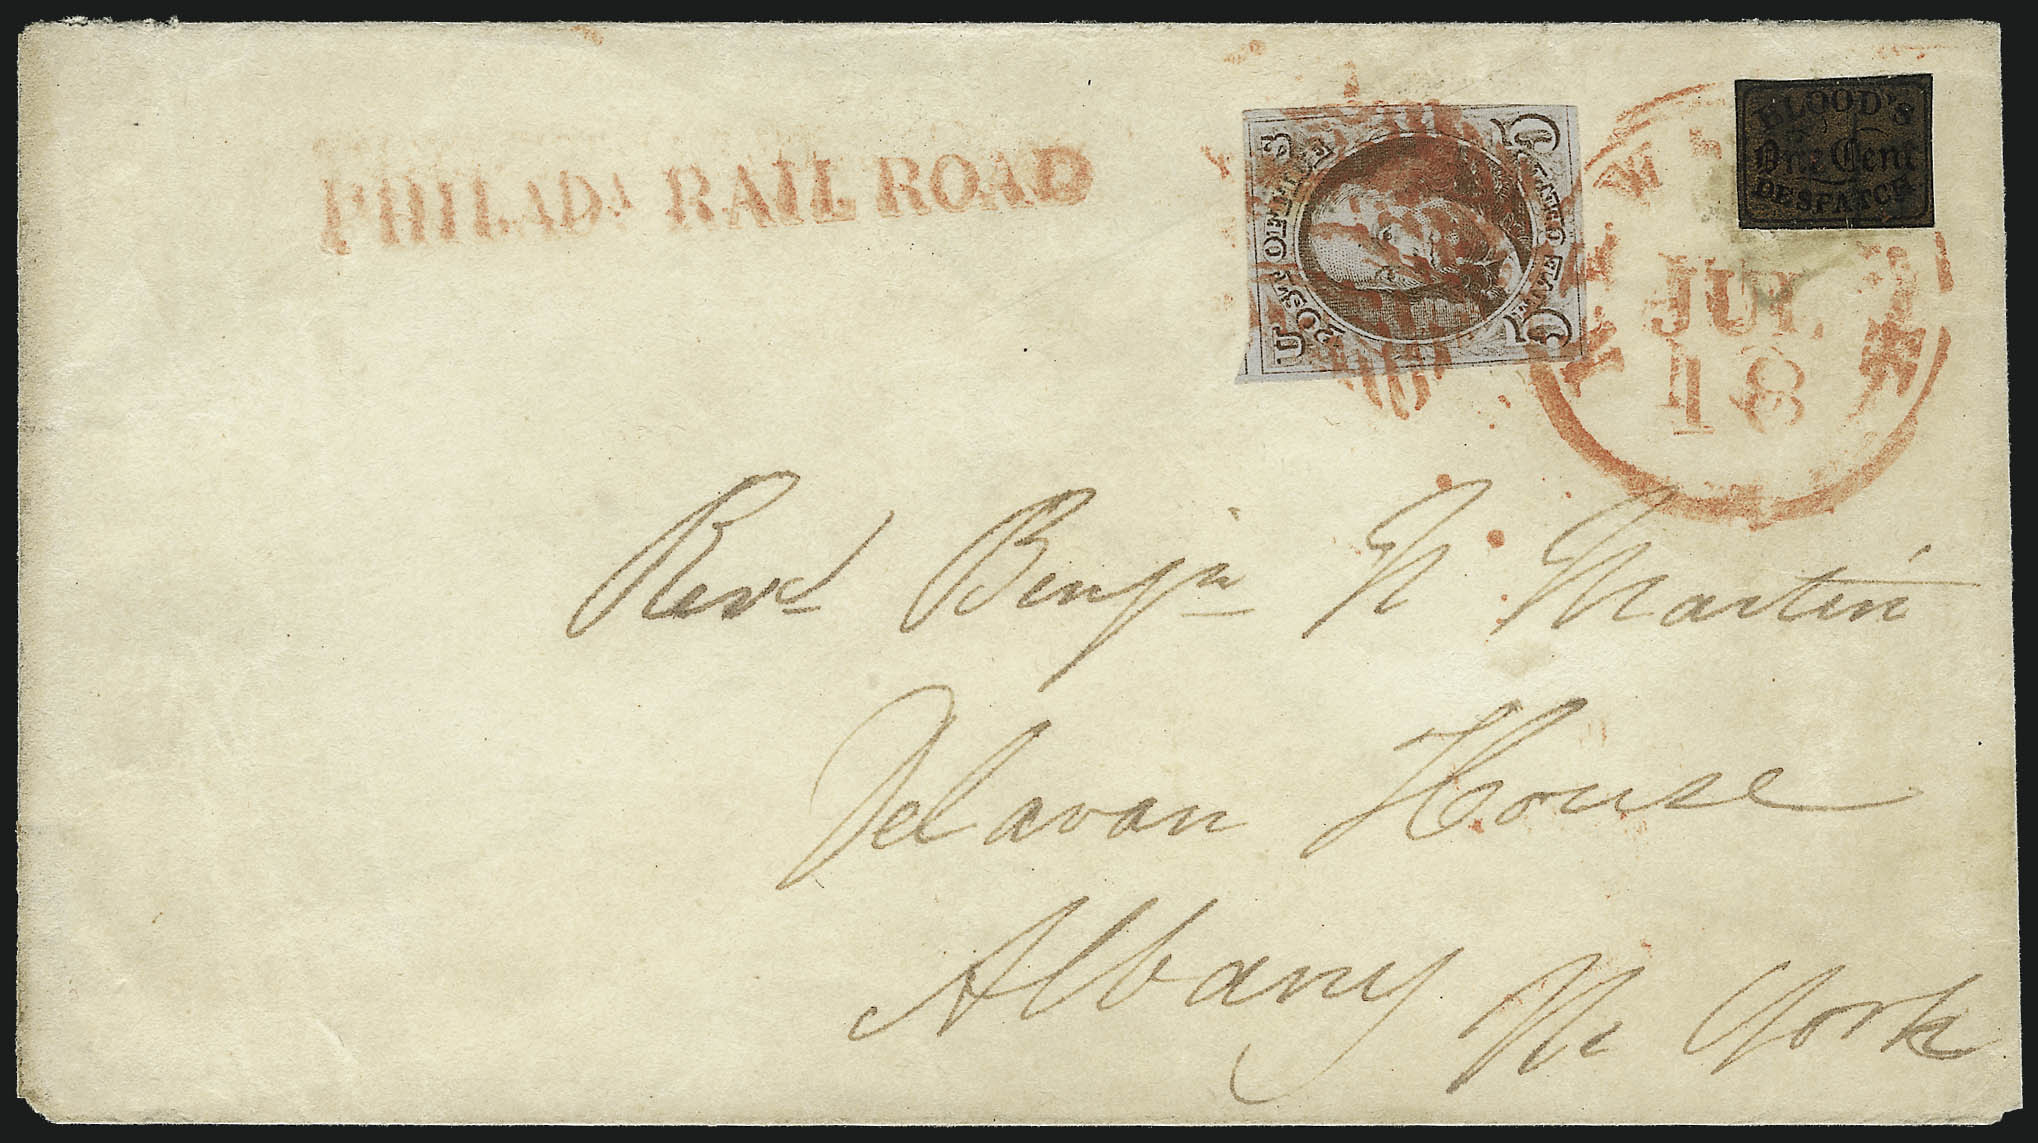 PHILADA RAIL ROAD
POST OFFICE
UNITED STATES
U S
5 5
BLOOD'S
One Cent
DESPATCH
NEW YORK
JUL
18
Revd Benjn N Martin
Delavan House
Albany N York